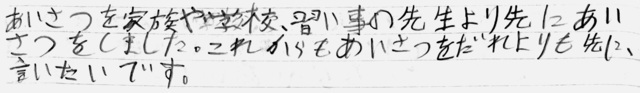 あいさつを家族や学校、習い事の先生より先にあい
さつをしました。これからもあいさつをだれよりも先に、
言いたいです。